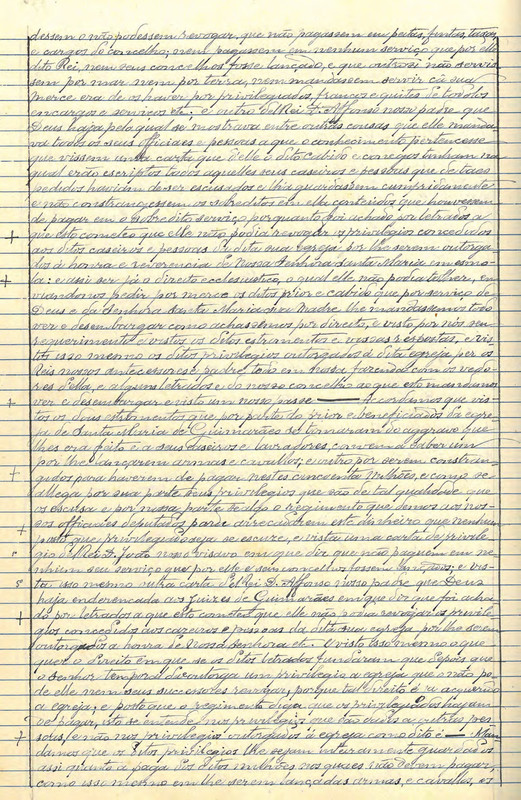 dessem o não podessem revogar, que não pagassem em peitas, fintas, taxas,
e cargos do concelho; nem pagassem em nenhum serviço que por elle
dito Rei, nem seus concelhos fosse lançado, e que outrosi não servis
sem por mar nem por terra, nem mandassem servir cá sua
merce era de os haver por privilegiados, francos e quites de todolos
encargos e serviços etc; e outro delRei D. Affonso nosso padre que
Deus haja pelo qual se mostrava entre outras cousas que elle manda
va todos os seus officiaes e pessoas a que o conhecimento pertencesse
que vissem uma carta que d'elle o dito cabido e conegos tinham na
qual erão escriptos todos aquelles seus caseiros e pessoas que de taes
pedidos haviam de ser escusados e lha guardassem cumpridamente
e não constrangessem os sobreditos em ella conteúdos que houvessem
de pagar em o sobredito serviço por quanto foi achado por letrados a
que isto cometeo que elle não podia revogar os privilegios concedidos
aos ditos caseiros e pessoas da dita sua egreja por lhe serem outorga
dos á honra e reverencia de Nossa Senhora Santa Maria
da: e assi ser já o direito ecclesiastico, o qual elle não podia tolher, en
viando nos pedir por merce os ditos prior e cabido que por serviço de
Deus e da Senhora Santa Maria sua Madre lhe mandassemos todo
ver e desembargar como achassemos por direito, e visto por nós seu
requerimento e vistos os ditos estromentos e vossas respostas, e vis
tos isso mesmo os ditos privilegios outorgados á dita egreja per os
Reis nossos antecessores e padre, todo em nossa fazenda com os vedo
res d'ella, e alguns letrados e do nosso concelho ao que esto mandamos
ver e desembargar e visto um nosso passe — Acordamos que vis
tos os ditos estromentos que por parte do Prior e beneficiados da egre
ja de Santa Maria de Guimarães se tomaram do aggravo que
lhes era feito e a seus caseiros e lavradores, convem a saber um
por lhe lançarem armas e cavallos, e outro por serem constran
gidos para haverem de pagar nestes cincoenta milhões, e como se
allega por sua parte seus privilegios que são de tal qualidade que
os escusa e por nossa parte se alega o regimento que demos aos nos
sos officiaes deputados, para de arrecadarem este dinheiro que nenhum
posto que privilegiado seja se escuze, e vista uma carta de privile
gio d'ElRei D. João nosso visavo em que diz que não paguem em ne
nhum seu serviço que por elle e seu concelho fossem lançados; e vis
ta isso mesmo outra carta d'ElRei D. Affonso nosso padre que Deus
haja enderençada aos Juizes de Guimarães em que diz que foi acha
do por letrados a que esto cometeo que elle não podia revogar os privile
gios concedidos aos caseiros e pessoas da dita sua egreja por lhe serem
outorgados a honra de Nossa Senhora etc. E visto isso mesmo o que
quer o direito em que se os ditos letrados fundaram que depois que
o Senhor temporal outorga um privilegio a egreja que o não po
de elle nem seus successores revogar, porque tal direito é já acquirido
a egreja; e posto que o regimento diga que os privilegiados hajam
de pagar, isto se entende nos privilegios que são dados a outras pes
soas, e não nos privilegios outorgados á egreja como dito é — Man
damos que os ditos privilegios lhe sejam inteiramente guardados
assi quanto á paga dos ditos milhões nos quaes não devem pagar,
como isso mesmo em lhe serem lançadas armas, e cavallos, os